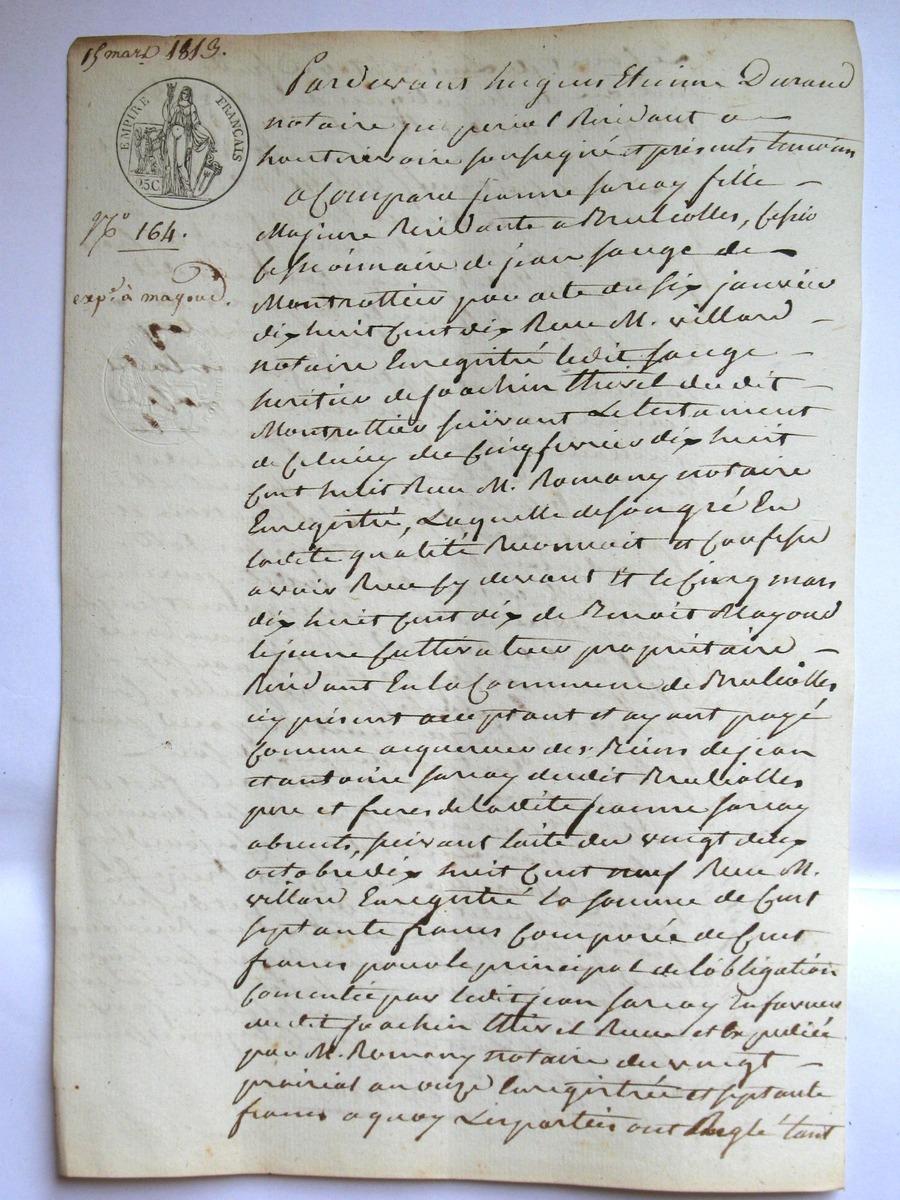 15 mars 1813.
EMPIRE FRANÇAIS
25C
N.º 164.
exp.e à mayoud.
Pardevant hugues Etienne Durand
notaire imperial Residant a
hauterivoire soussigné et présents temoins
a Comparu jeanne sarcay fille
Majeure Residante a Brulliolles,
cessionnaire de jean sauge de
Montrottier par acte du six janvier
dix huit Cent dix Recu M. villard
notaire Enregistré ledit sauge
heritier de joachin thivel du dit
Montrottier suivant Le testament
de Celuicy du Cinq fevrier dix huit
Cent huit Recu M. Romany notaire
Enregistré, Laquelle de son gré En
ladite qualité Reconnait et Confesse
avoir Recu cy devant Et le Cinq mars
dix huit Cent dix de Benoit Mayoud
lejeune Cultivateur propriétaire
Residant En la Commune de Brulliolles
icy présent acceptant et ayant payé
Comme acquereur des Biens de jean
et antoine sarcay dudit Brulliolles
pere et freres de ladite jeanne sarcay
absents, suivant lacte du vingt deux
octobre dix huit Cent neuf Recu M.
villard Enregistré la somme de Cent
septante francs Composée de Cent
francs pour le principal de l'obligation
Consentie par ledit jean sarcay En faveur
du dit joachin thivel Recue et Expediée
par M. Romany notaire du vingt
prairial an onze Enregistrée et septante
francs a quoy Les parties ont Reglé tant